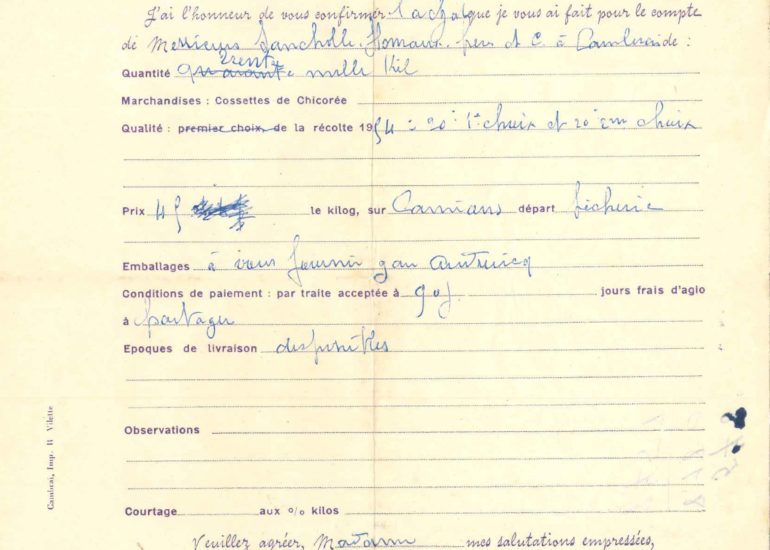 J'ai l'honneur de vous confirmer l'achat que je vous ai fait pour le compte
de Messieurs père et C. à Cambrai de :
Quantité quarante trente mille Kil
Marchandises : Cossettes de Chicorée
Qualité : premier choix, de la récolte 1954 = 20 1er choix et 20 2em choix
Prix 45 le kilog, sur Camions départ sécherie
Emballages à vous fournir par
Conditions de paiement : par traite acceptée à 90 j. jours frais d'agio
à partager
Epoques de livraison disponibles
Observations
Courtage aux % kilos
Veuillez agréer, Madame mes salutations empressées,
Cambrai, Imp. H Vilette